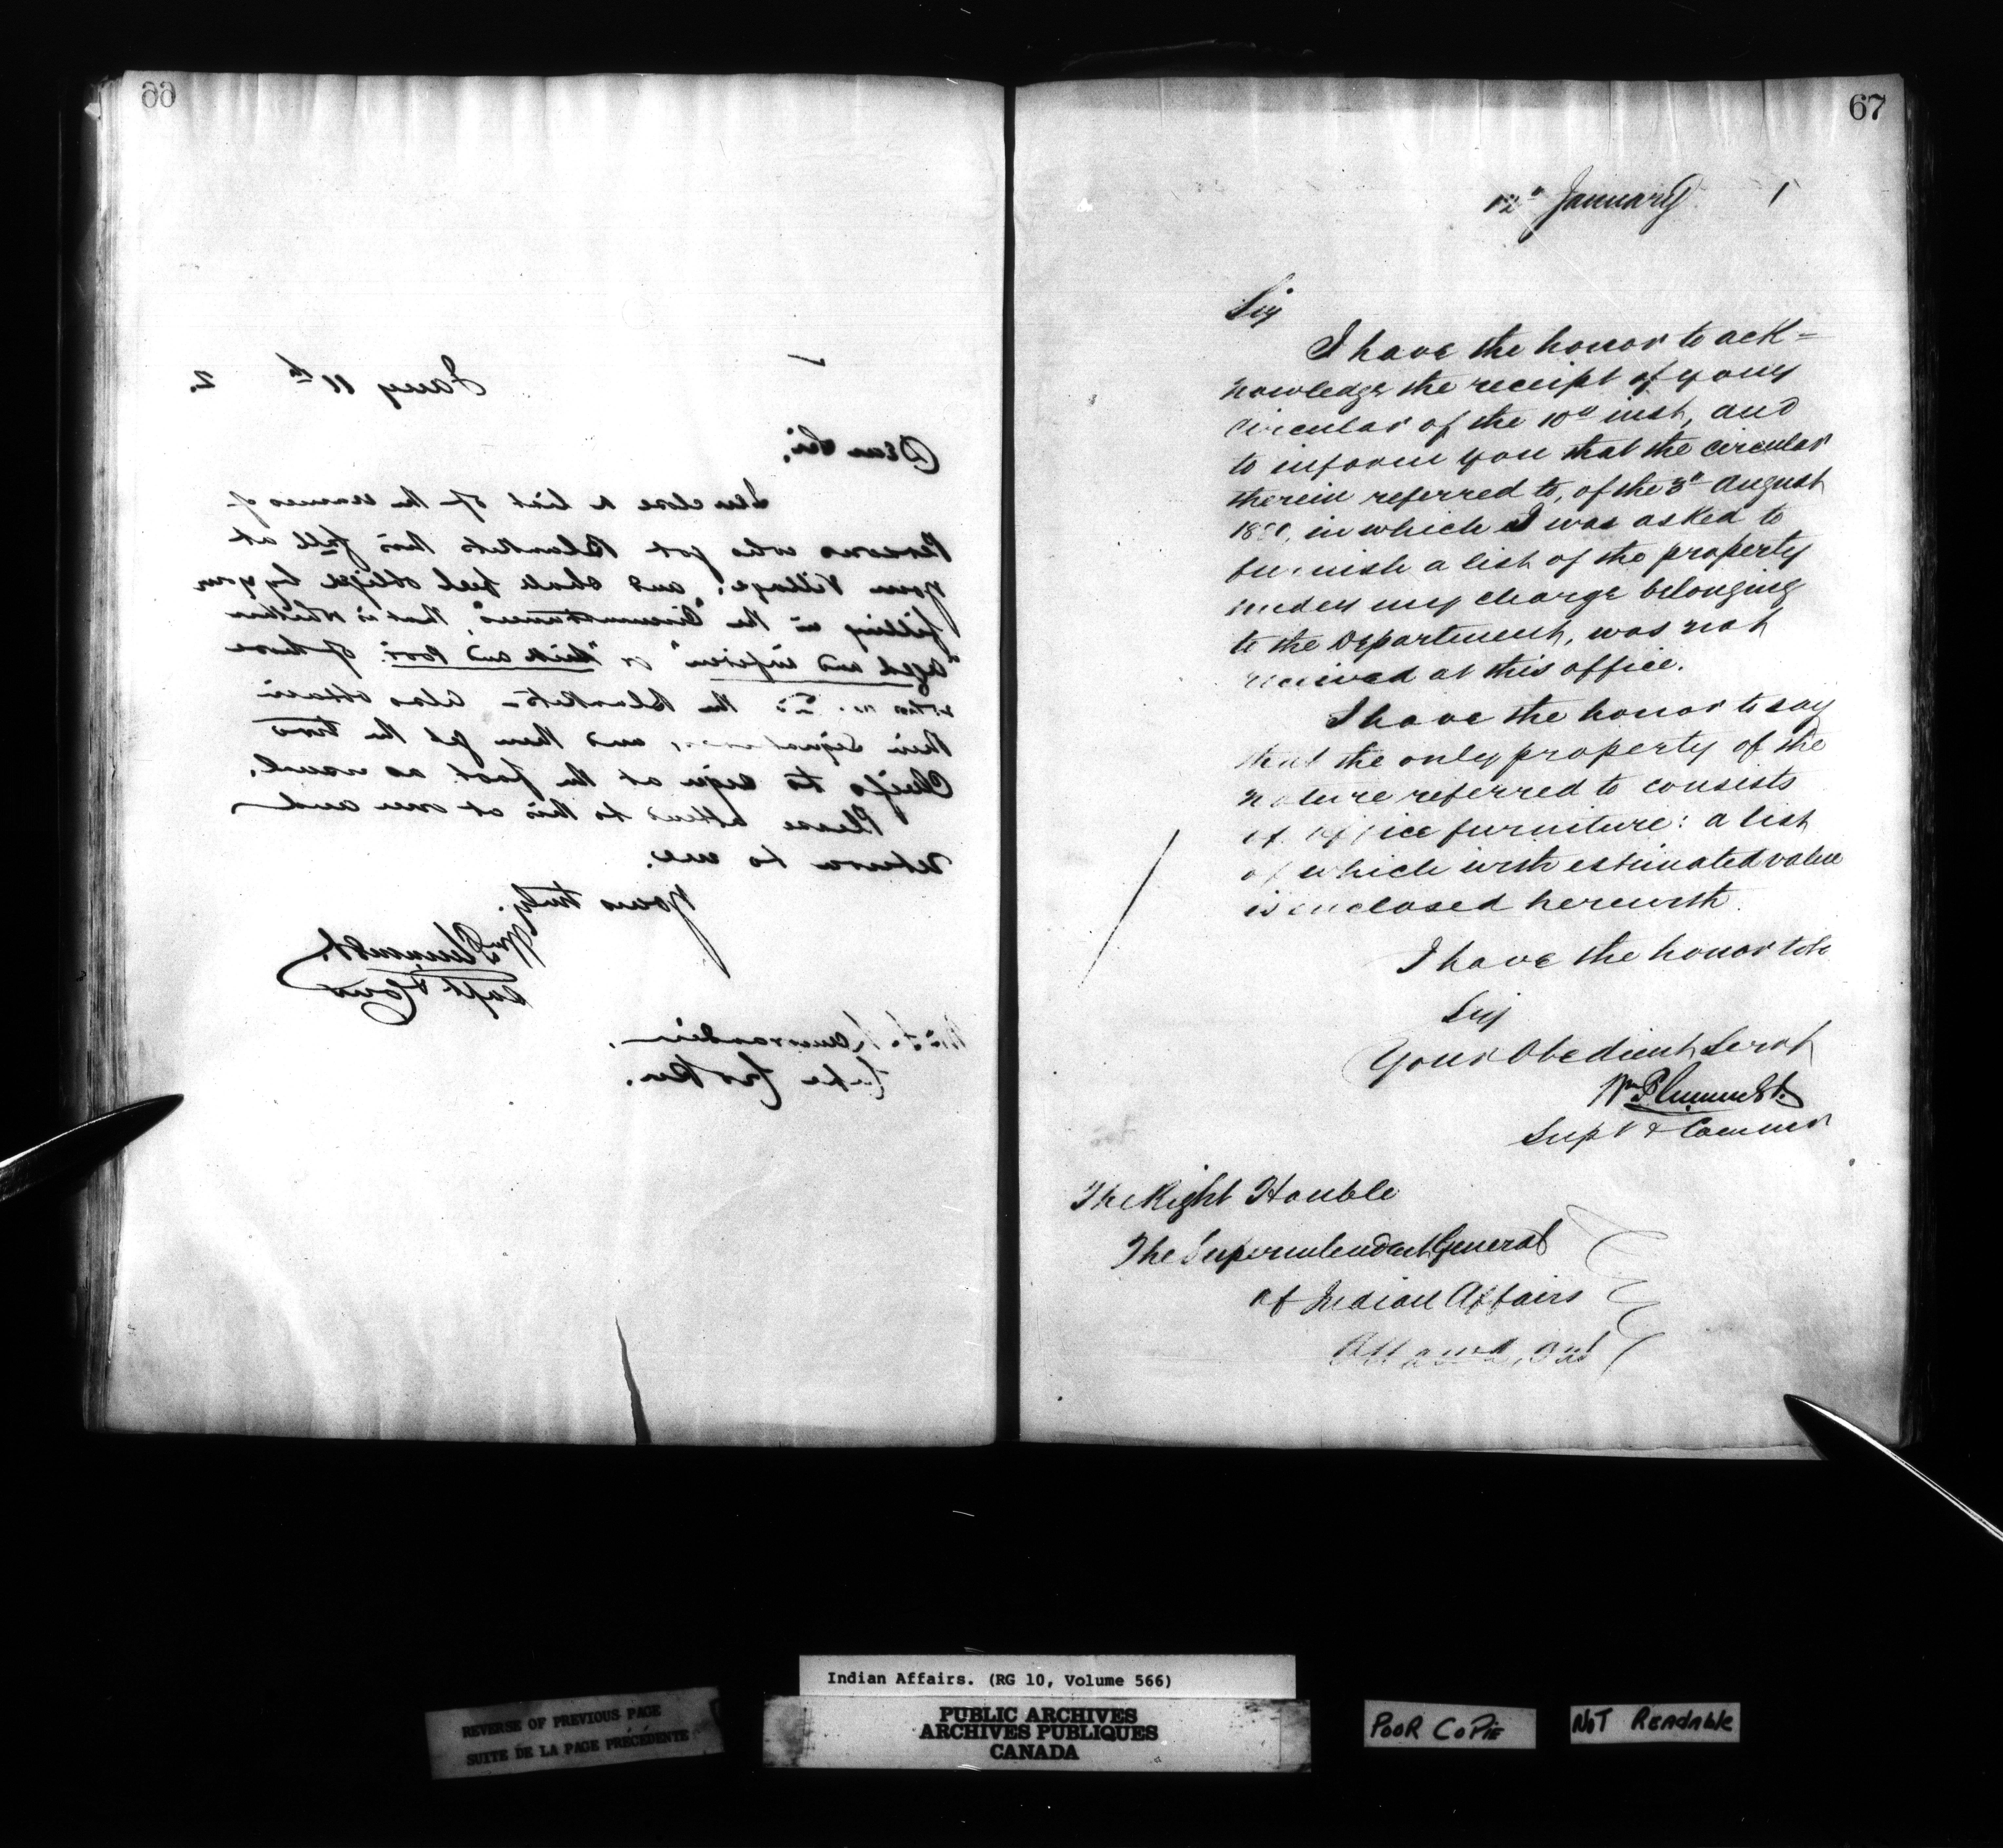 66
Jany 11th 2.
Dear Sir,
Inclose a list of the names of
Persons who got Blankets this fall at
your Village, and shall feel oblige by your
filling in the "Circumstances", that is whether
"aged and infirm" or "Sick and Poor" of those
the Blankets - also obtain
their signatures, and then get the two
Chiefs to sign at the foot as usual.
Please attend to this at once and
return to me.
Yours truly,
Wm Plummer
Supt & Comr
67
12th January 1
Sir
I have the honor to ack=
nowledge the receipt of your
Circular of the 10th inst, and
to inform you that the circular
therein referred to, of the 3d August
1880, in which I was asked to
furnish a list of the property
under my charge belonging
to the Department, was not
received at this office.
I have the honor to say
that the only property of the
nature referred to consists
of office furniture: a list
of which with estimated value
is enclosed herewith.
I have the honor to be
Sir
Your Obedient Servt
Wm Plummer
Supt & Commr
The Right Honble
The Superintendent General
of Indian Affairs
Ottawa, Ont
Indian Affairs. (RG 10, Volume 566)
PUBLIC ARCHIVES
ARCHIVES PUBLIQUES
CANADA
REVERSE OF PREVIOUS PAGE
SUITE DE LA PAGE PRÉCÉDENTE
POOR COPIE
NOT READABLE